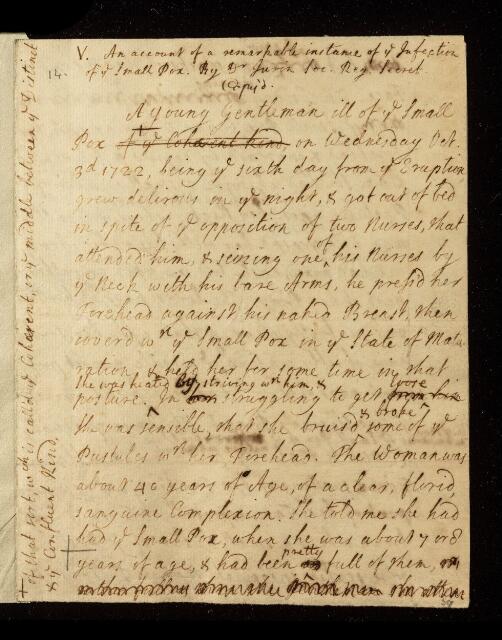 V. An account of a remarkable instance of yͤ Infection
14. of yͤ Small Pox. By Dʳ Jurin Soc. Reg. Secret
Copy'd.
A young Gentleman ill of yͤ Small
Pox + of yͤ Coherent Kind, on Wednesday Oct.
3d 1722, being yͤ sixth day from yͤ Eruption
grew delirous in yͤ night, & got out of bed
in spite of yͤ opposition of two Nurses, that
attended him, & seizing one of his Nurses by
yͤ Neck with his bare Arms, he press'd her
Forehead against his naked Breast, then
cover'd wͭʰ yͤ Small Pox in yͤ State of Matu
ration, & held her for some time in that
She was heated by striving wͭʰ him, &
posture. In struggling to get loose
She was sensible, that she bruis'd & broke some of yͤ
Pustules wͭʰ her Forehead. The Woman was
about 40 years of Age, of a clear, florid,
sanguine Complexion. She told me she had
had yͤ Small Pox, when she was about 7 or 8
years of age, & had been pretty full of them,
+ of that sort, wͨʰ is call'd yͤ Coherent, or yͤ middle between yͤ Distinct
& yͤ Confluent Kind.